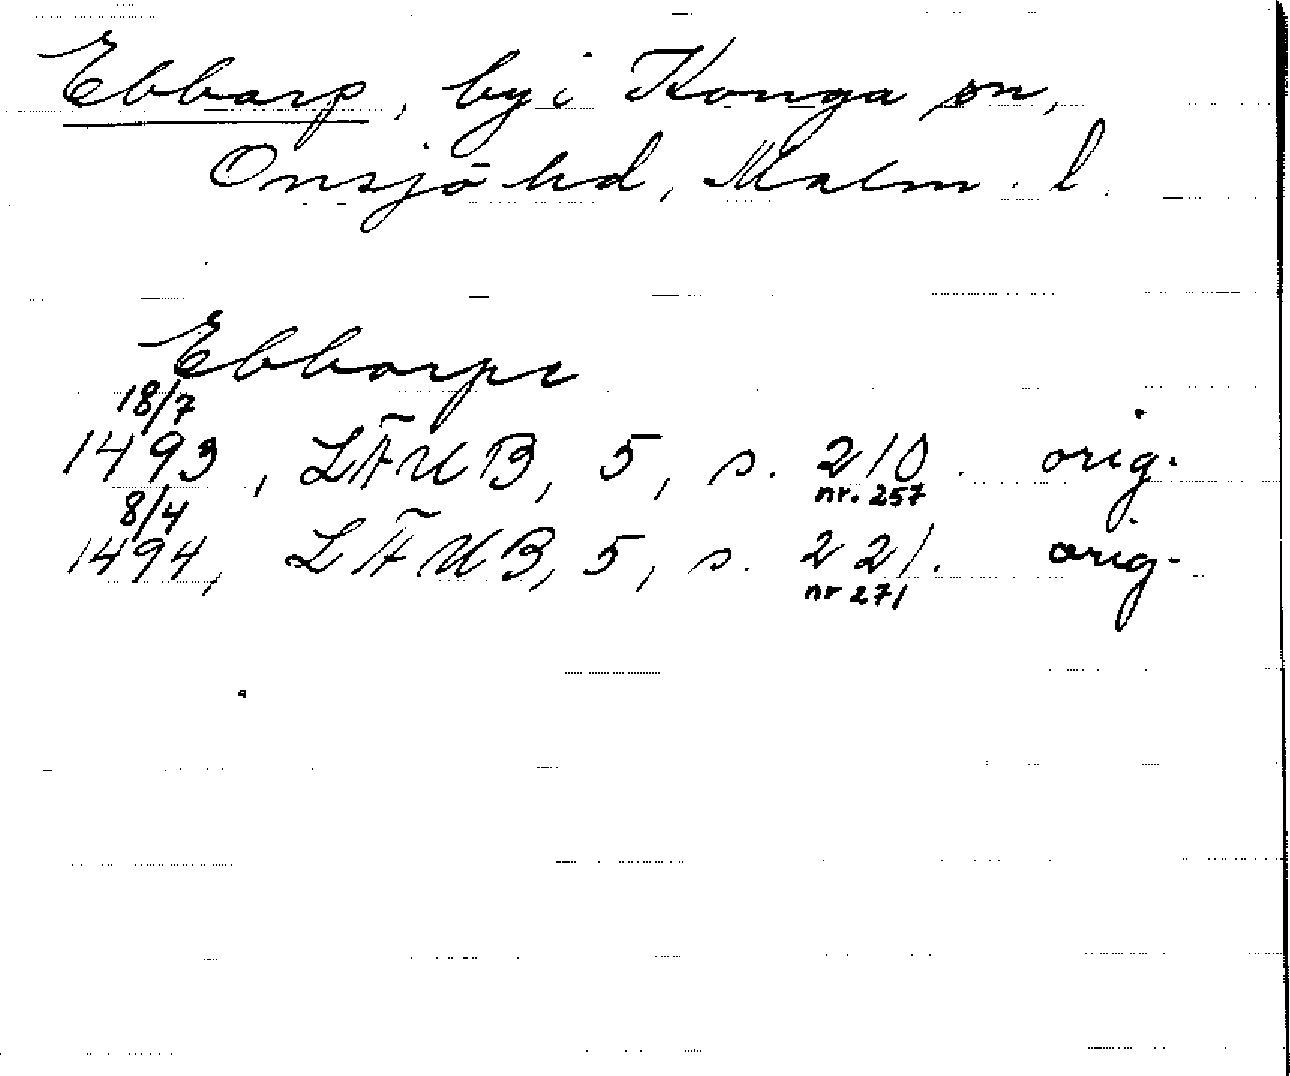 Ebbarp, by i Konga sn,
Onsjö hd, Malm. l.
Ebbarpe
18/7
1493, LÄUB, 5, s. 210. orig.
nr. 257
8/4
1494, LÄUB, 5, s. 221. orig.
nr 271